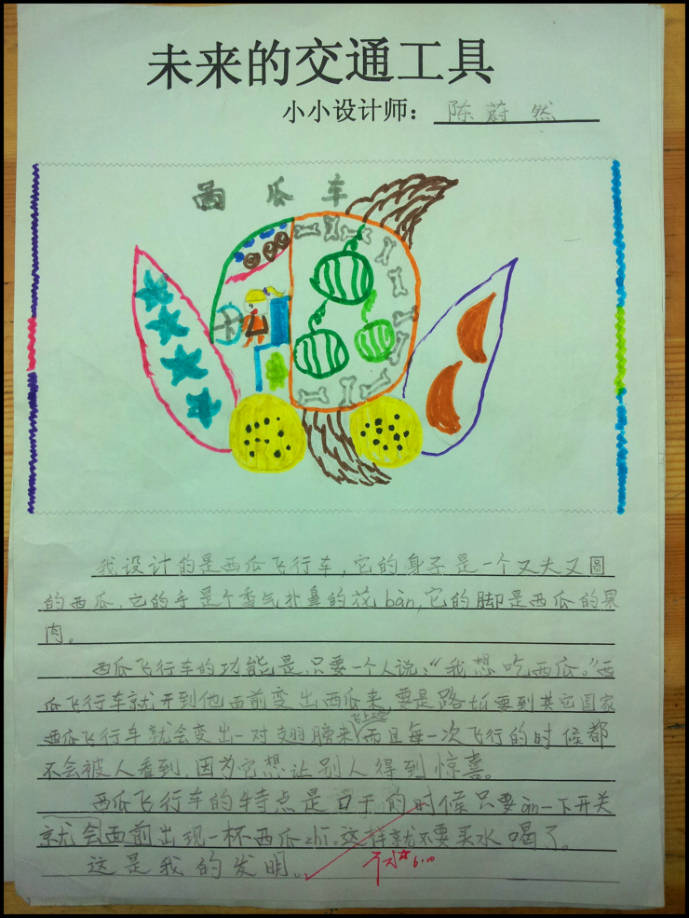 未来的交通工具
小小设计师：陈蔚然
西瓜车
我设计的是西瓜飞行车，它的身子是一个又大又圆
的西瓜，它的手是个香气扑鼻的花bàn，它的脚是西瓜的果
肉。
西瓜飞行车的功能是，只要一个人说：“我想吃西瓜。”西
瓜飞行车就开到他面前变出西瓜来，要是路 要到其它国家
西瓜飞行车就会变出一对翅膀来 而且每一次飞行的时候都
不会被人看到，因为它想让别人得到惊喜。
西瓜飞行车的特点是口干的时候只要àn一下开关
就会面前出现一杯西瓜zhī。这样就不要买水喝了。
这是我的发明。